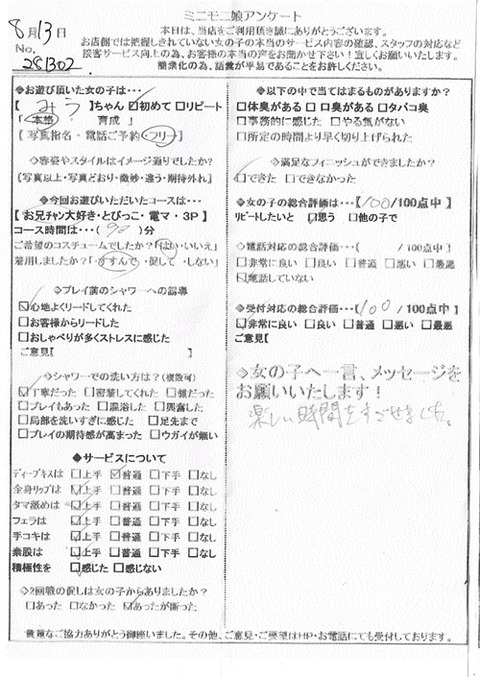 ミニモニ娘アンケート
8月13日
No.
281302
本日は、当店をご利用頂き誠にありがとうございます。
お店側では把握しきれていない女の子の本当のサービス内容の確認、スタッフの対応など
接客サービス向上の為、お客様の本当の声をお聞かせ下さい!宜しくお願いいたします。
簡素化の為、語彙が平易であることをお許しください。
◆お遊び頂いた女の子は?
【 みう 】ちゃん ☑初めて □リピート
「 本格 ・ 育成 」
【 写真指名・電話ご予約・フリー 】
◇容姿やスタイルはイメージ通りでしたか?
【写真以上・写真どおり・微妙・違う・期待外れ】
◆今回お遊びいただいたコースは…
【お兄チャン大好き・とびっこ・電マ・3P】
コース時間は…( 90 )分
ご希望のコスチュームでしたか?「はい・いいえ」
着用しましたか?「すすんで・促して・しない」
◇プレイ前のシャワーへの誘導
☑心地よくリードしてくれた
□お客様からリードした
□おしゃべりが多くストレスに感じた
ご意見【 】
◇シャワーでの洗い方は?(複数可)
☑丁寧だった □密着してくれた □雑だった
□プレイもあった □混浴した □興奮した
□局部を洗いすぎに感じた □足先まで
□プレイの期待感が高まった □ウガイが無い
◆サービスについて
ディープキスは □上手 ☑普通 □下手 □なし
全身リップは ☑上手 □普通 □下手 □なし
タマ舐めは ☑上手 □普通 □下手 □なし
フェラは ☑上手 □普通 □下手 □なし
手コキは ☑上手 □普通 □下手 □なし
素股は ☑上手 □普通 □下手 □なし
積極性を ☑感じた □感じない
◇2回戦の促しは女の子からありましたか?
□あった □なかった ☑あったが断った
◆以下の中で当てはまるものがありますか?
□体臭がある □口臭がある □タバコ臭
□事務的に感じた □やる気がない
□所定の時間より早く切り上げられた
◇満足なフィニッシュができましたか?
☑できた □できなかった
◆女の子の総合評価は…【 100 /100点中】
リピートしたいと ☑思う □他の子で
◇電話対応の総合評価…( /100点中】
□非常に良い □良い □普通 □悪い □最悪
☑電話していない
◆受付対応の総合評価…( 100 /100点中】
☑非常に良い □良い □普通 □悪い □最悪
ご意見【
◇女の子へ一言、メッセージを
お願いいたします!
楽しい時間をすごせました。
貴重なご協力ありがとう御座いました。その他、ご意見・ご要望はHP・お電話にても受付しております。